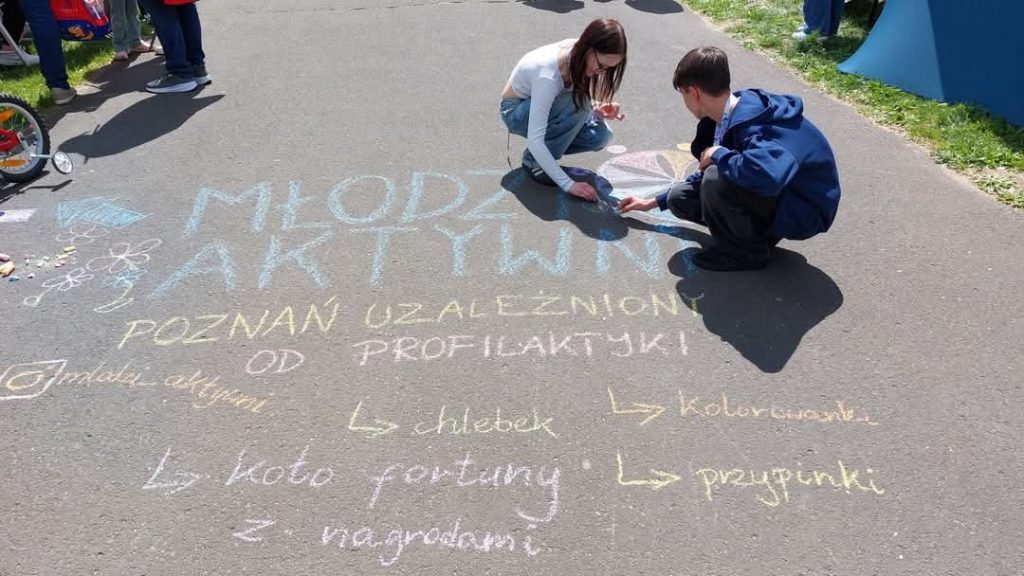 MŁODZI
AKTYWNI
POZNAŃ UZALEŻNIONY
OD PROFILAKTYKI
młodzi_aktywni
↳ chlebek
↳ kolorowanki
↳ koło fortuny
z nagrodami
↳ przypinki